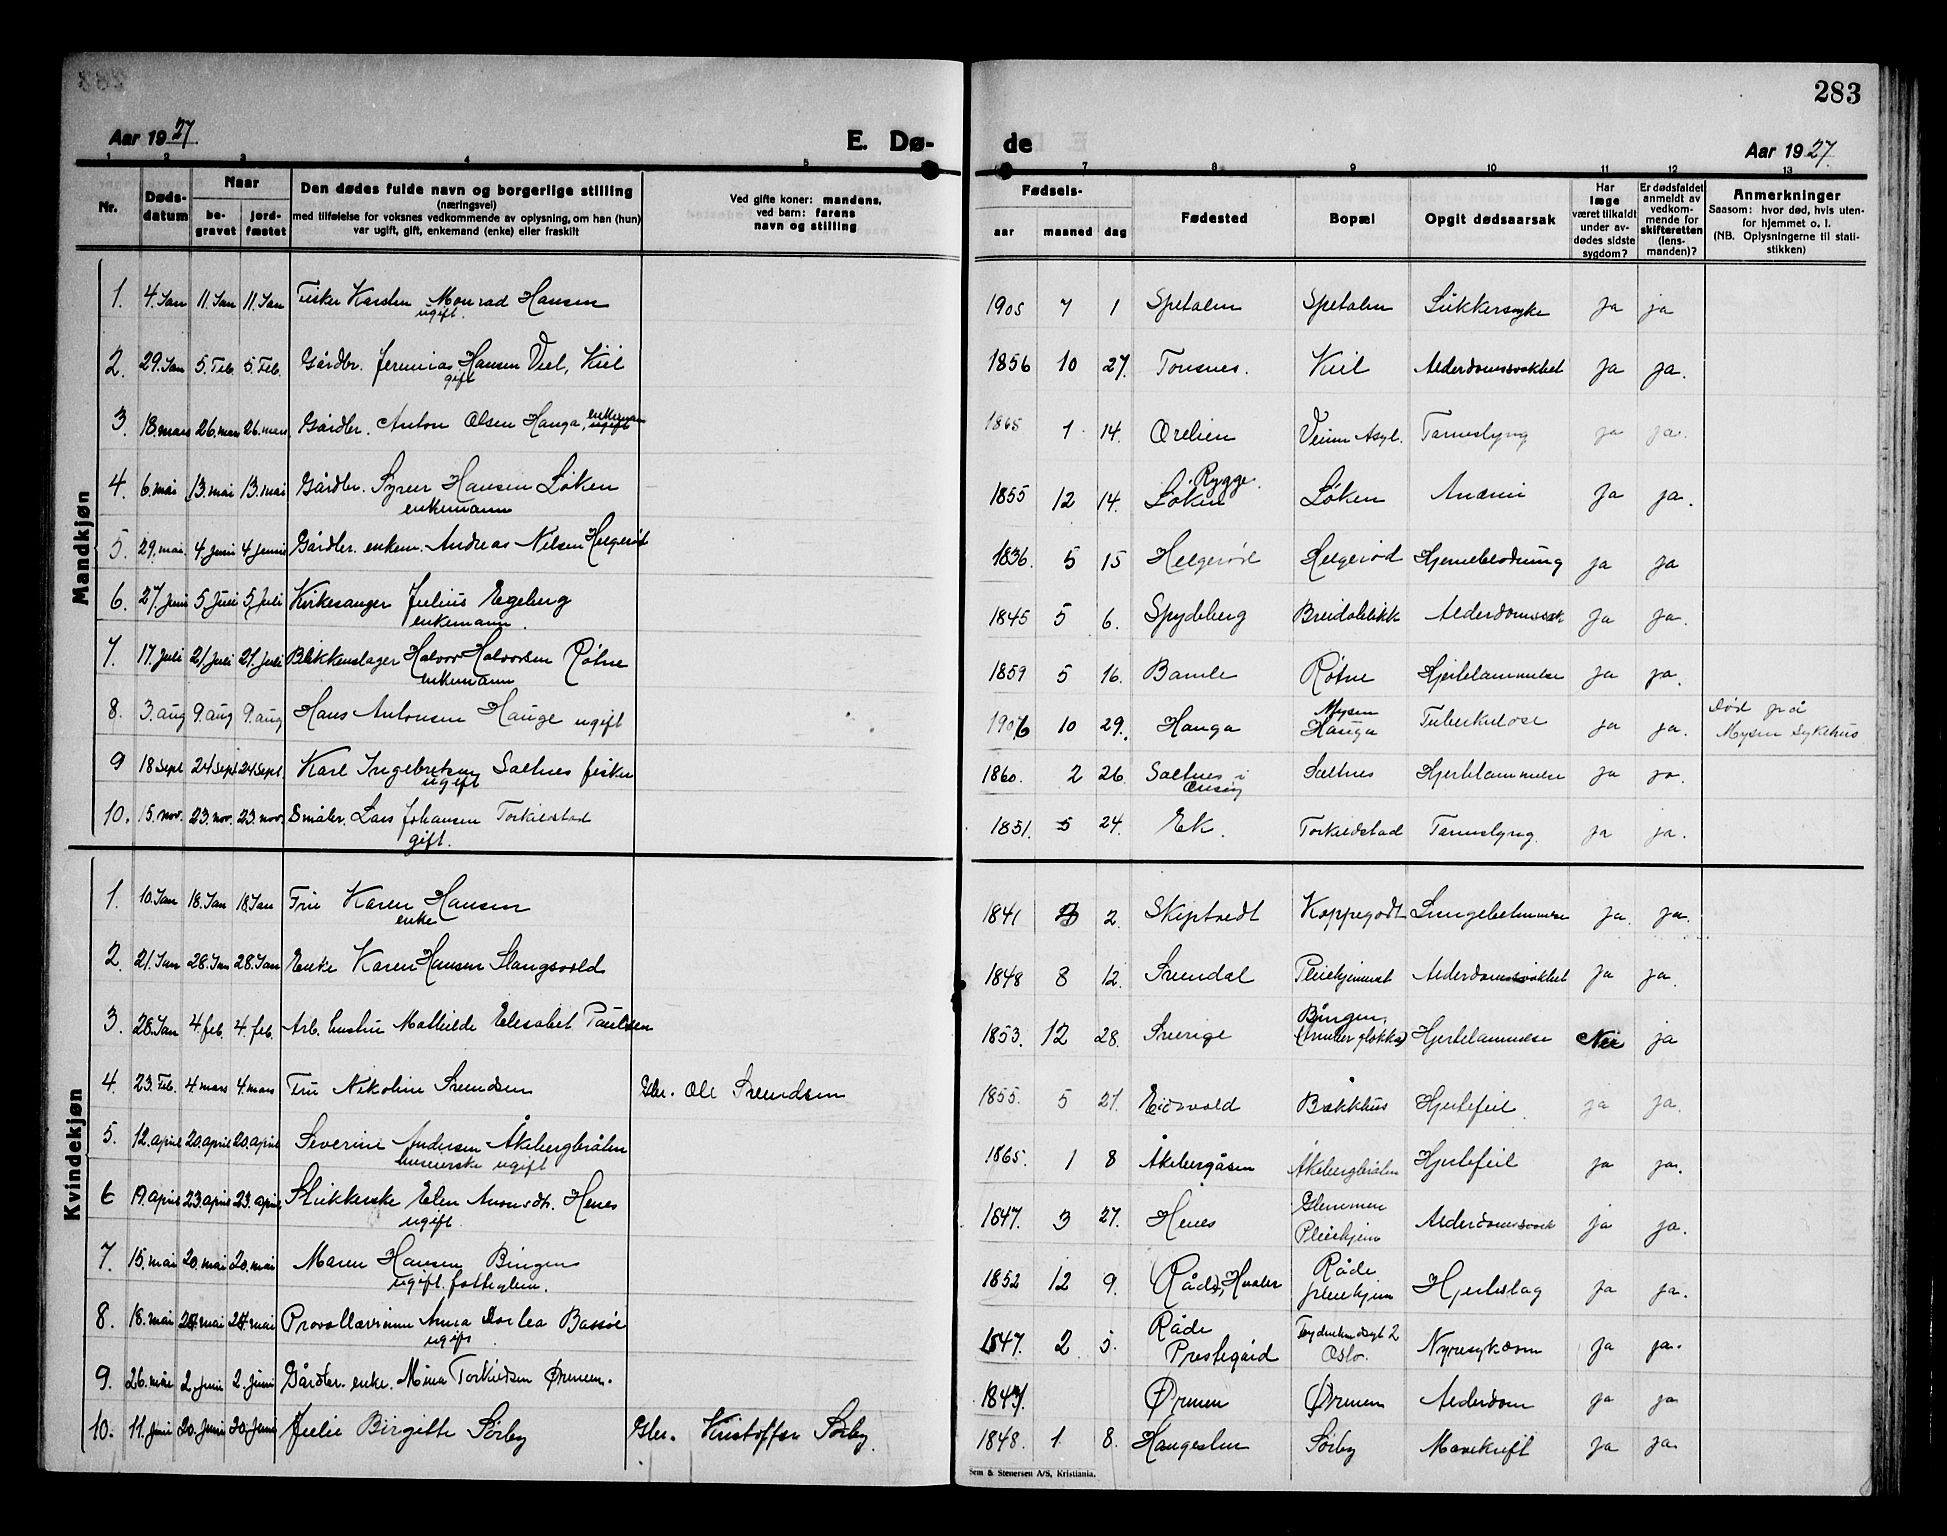 283
Aar 1927
E. Dø-
de
Aar 1927.
1 2 3 4 5 7 8 9 10 11 12 13
Nr.
Døds-
datum
Naar
be-
gravet
jord-
fæstet
Den dødes fulde navn og borgerlige stilling
(næringsvei)
med tilføielse for voksnes vedkommende av oplysning, om han (hun)
var ugift, gift, enkemand (enke) eller fraskilt
Ved gifte koner: mandens,
ved barn: farens
navn og stilling
Fødsels-
aar maaned dag
Fødested
Bopæl
Opgit dødsaarsak
Har
læge
været tilkaldt
under av-
dødes sidste
sygdom?
Er dødsfaldet
anmeldt av
vedkom-
mende for
skifteretten
(lens-
manden)?
Anmerkninger
Saasom: hvor død, hvis uten-
for hjemmet o. l.
(NB. Oplysningerne til stati-
stikken)
Mandkjøn
1. 4. Jan 11. Jan 11. Jan Fisker Karsten Monrad Hansen 1905 7 1 Spetalen Spetalen Sukkersyke ja ja
ugift.
2. 29. Jan 5. Feb. 5. Feb. Gårdbr. Jeremias Hansen Viel, Kiil 1856 10 27. Tonsnes. Kiil Alderdomssvakhet ja ja.
gift
3. 18. mars 26. mars 26. mars Gårdbr. Anton Olsen Hauga, enkemann ugift 1865 1 14. Ørelien Veum Asyl. Tarmslyng ja ja.
4. 6. mai 13. mai 13. mai Gårdbr. Syver Hansen Løken 1855 12 14. Løken Rygge. Løken Anæmi ja ja.
enkemann
5. 29. mai 4 juni 4 juni Gårdbr. enkem. Andreas Nilsen Helgerød 1836. 5 15 Helgerød Helgerød Hjerneblødning ja ja
6. 27. juni 5. Juli 5. Juli Kirkesanger Julius Egeberg 1845 5 6. Spydeberg Breidablikk Alderdomssvak ja ja.
enkemann.
7. 17. juli 21. juli 21. juli Blikkenslager Halvor Halvorsen Røtne 1859 5 16. Bamle Røtne Hjertelammelse ja ja.
enkemann
8. 3. aug 9. aug 9. aug Hans Antonsen Hauge ugift 1906 10 29. Hauga Mysen Hauga Tuberkulose ja ja. Død på
Mysen Sykehus
9 18 sept 24 sept 24 sept. Karl Ingebretsen Saltnes fisker 1860. 2 26. Saltnes i Onsøy Saltnes Hjertelammelse ja ja.
ugift
10. 15. nov. 23. nov. 23. nov. Småbr. Lars Johansen Torkildstad 1851. 5 24. Ek. Torkildstad Tarmslyng. ja ja.
gift.
Kvindekjøn
1. 10. Jan 18. Jan 18 Jan Fru Karen Hansen 1841 2. Skiptvedt Koppegodt Lungebetennelse ja. ja.
enke
2. 21. Jan 28. Jan 28. Jan Enke Karen Hansen Slangsvold 1848 8 12. Svendal Pleiehjemmet Alderdomssvakhet ja ja.
3. 28. Jan 4. feb. 4. feb. Arb. hustru Mathilde Elisabet Paulsen 1853. 12 28. Sverige Bingen, Hjertelammelse Nei ja
4. 23. Feb. 4 mars 4. mars Fru Nikoline Svendsen Gbr. Ole Svendsen 1855. 5 21. Eidsvold Bækkhus Hjertefeil. ja ja.
5. 12. april 20. april 20. april Severine Andersen Åkebergbråten 1865. 1 8 Åkebergåsen Åkebergbråten Hjertefeil ja ja.
ugift
6 19. april 23. april 23. april Strikkerske Elen Aronsdtr. Henes 1847. 3 27. Henes Glemmen Pleiehjem Alderdomssvak ja ja.
ugift.
7. 15. mai 20. mai 20. mai Maren Hansen Bingen 1852 12 9. Råde, Hvaler Råde pleiehjem Hjerteslag ja ja.
ugift.
8. 18. mai 24. mai 24. mai Anna Dorthea Bassøe 1847. 2 5. Råde Prestegård Oslo. Nyresykdom ja ja.
ugift
9. 26. mai 2. juni 2. juni Gårdbr. enke. Mina Torkildsen Ørmen. Ørmen Ørmen Alderdom ja ja
10. 11. juni 20. juni 20. juni Julie Birgitte Sørby Gbr. Kristoffer Sørby. 1848. 1 8. Haugesten Sørby Mavekreft ja ja.
Sem & Stenersen A/S, Kristiania.